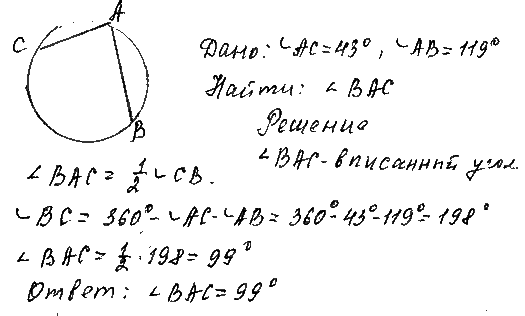 A
C
B
Дано: ◡AC=43°, ◡AB=119°
Найти: ∠BAC
Решение
∠BAC - вписанный угол.
∠BAC = 1/2 ◡CB.
◡BC = 360°-◡AC-◡AB = 360°-43°-119°=198°
∠BAC = 1/2 · 198 = 99°
Ответ: ∠BAC=99°